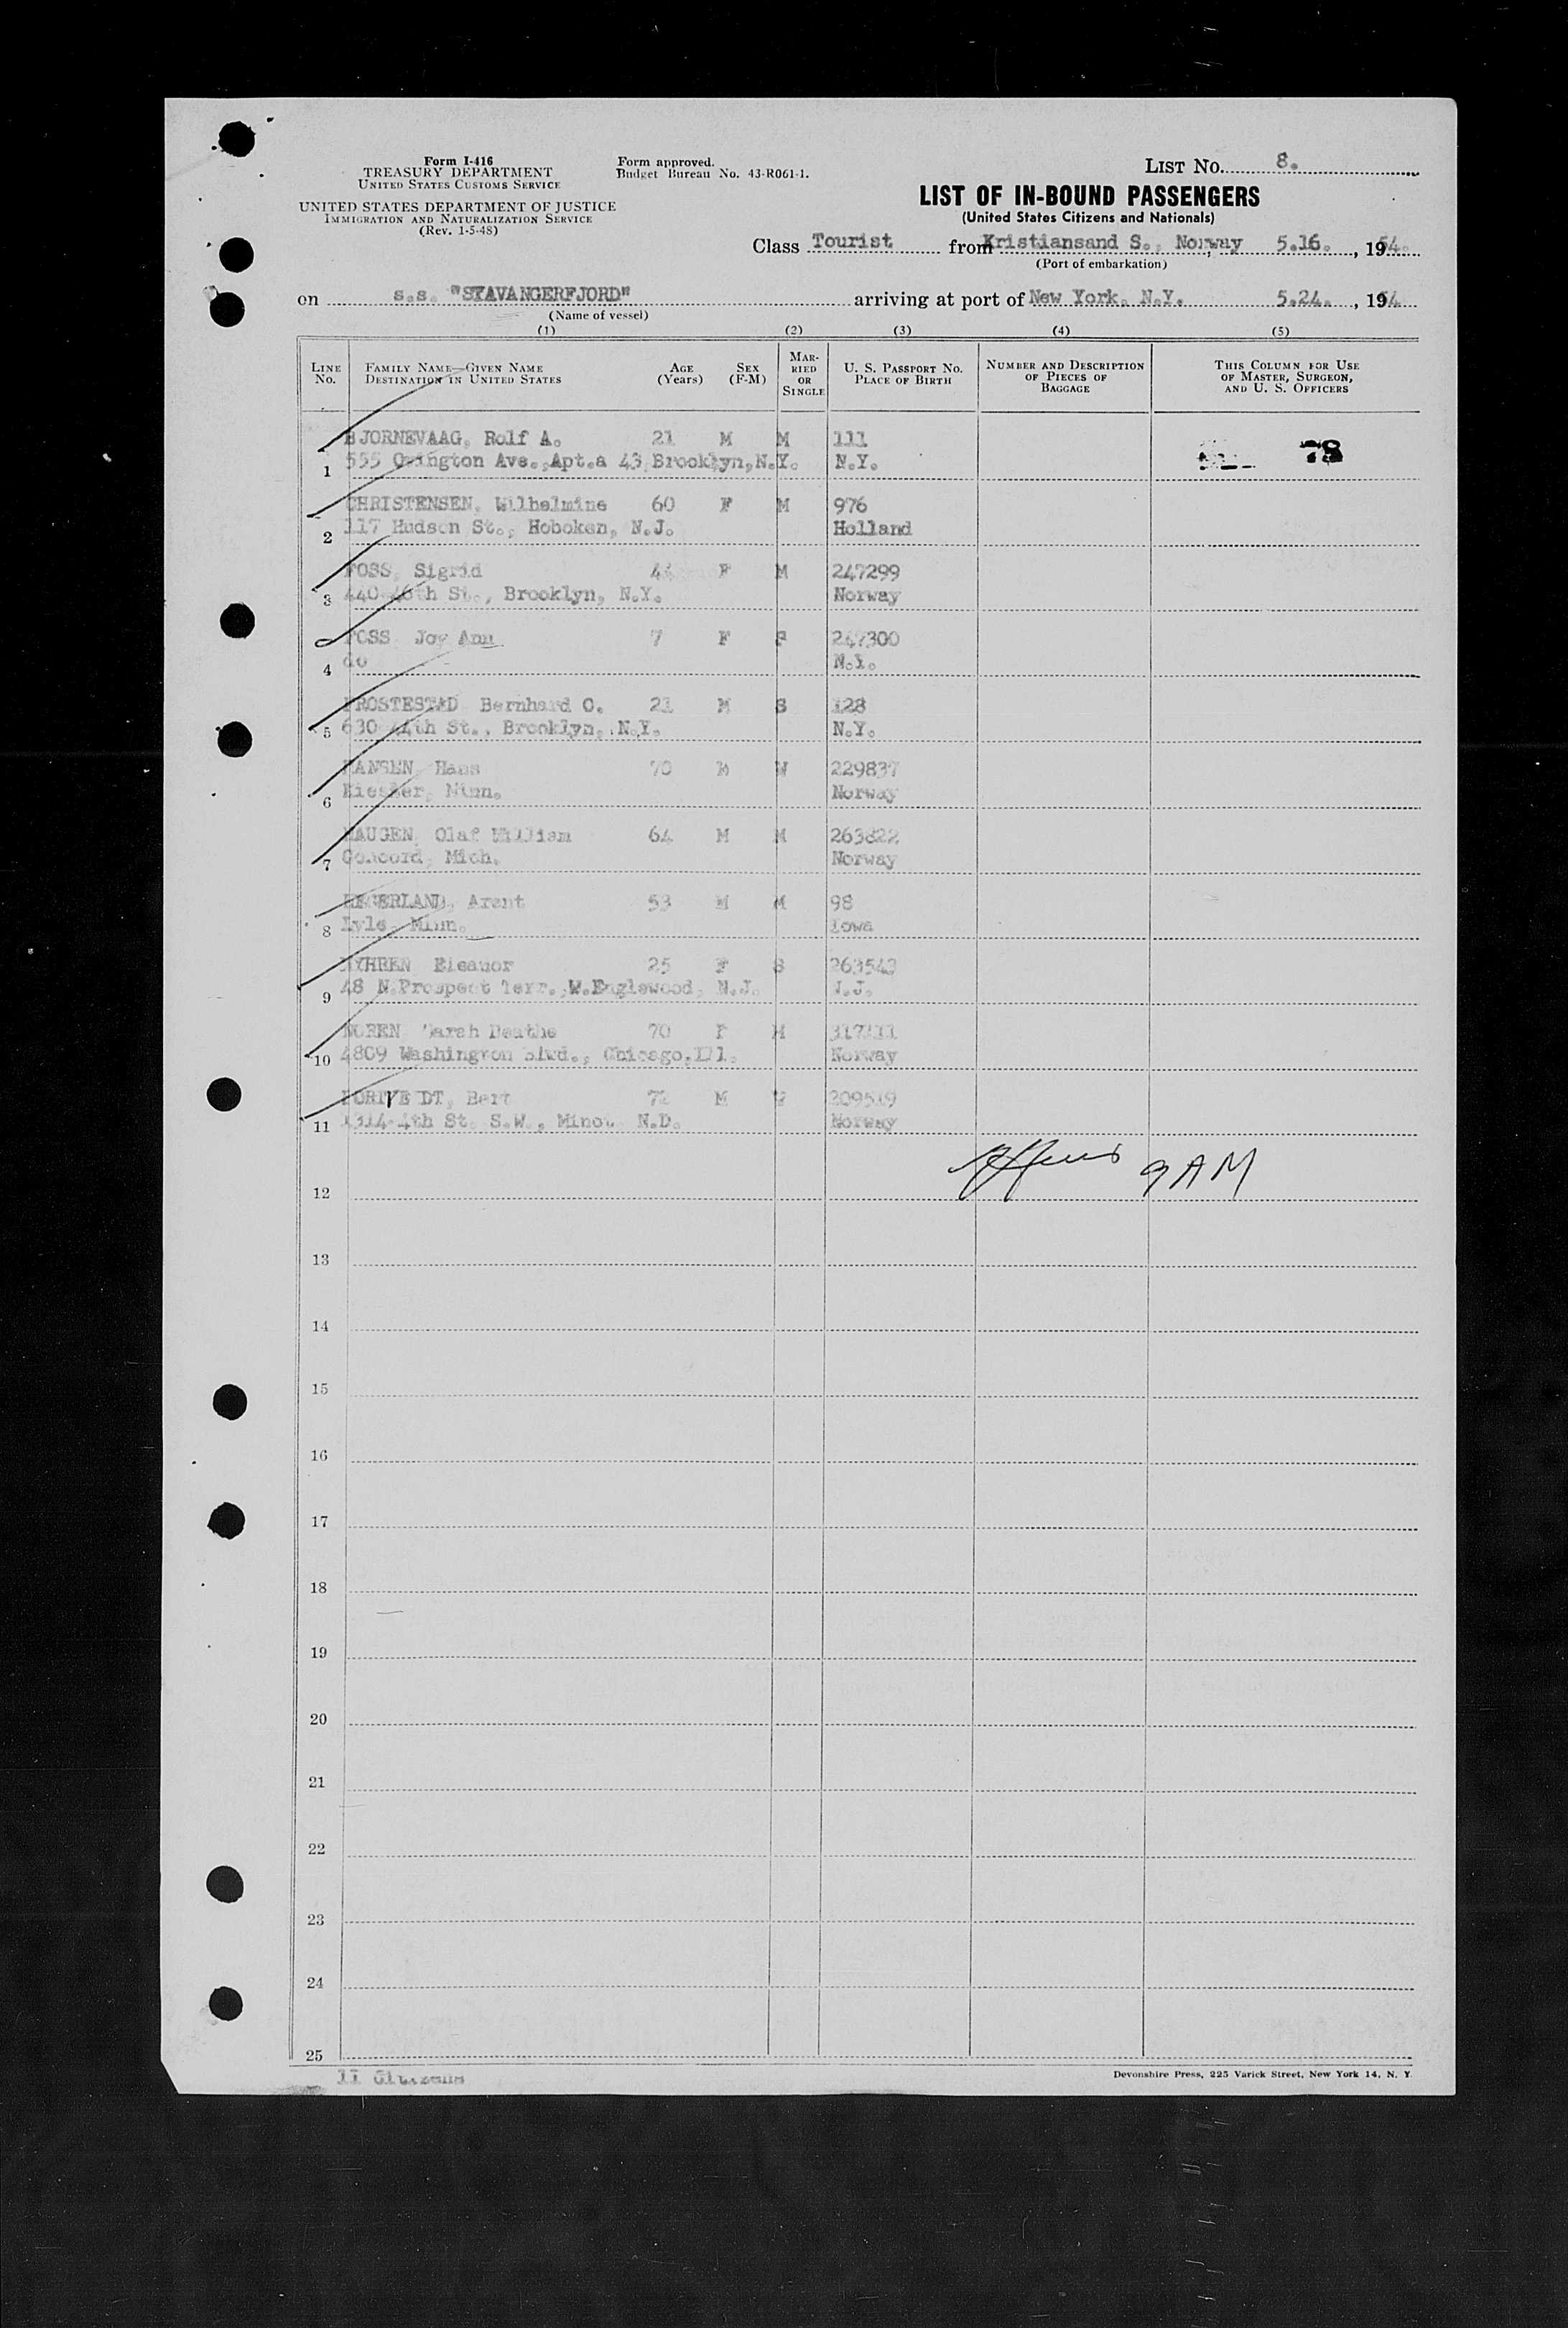 Form I-416
TREASURY DEPARTMENT
UNITED STATES CUSTOMS SERVICE
UNITED STATES DEPARTMENT OF JUSTICE
IMMIGRATION AND NATURALIZATION SERVICE
(Rev. 1-5-48)
Form approved.
Budget Bureau No. 43-R061-1.
LIST No. 8.
LIST OF IN-BOUND PASSENGERS
(United States Citizens and Nationals)
Class Tourist from Kristiansand S., Norway 5.16., 1954.
(Port of embarkation)
on s.s. "STAVANGERFJORD" arriving at port of New York, N.Y. 5.24., 1954
(Name of vessel)
(1) (2) (3) (4) (5)
LINE No. FAMILY NAME—GIVEN NAME DESTINATION IN UNITED STATES AGE (Years) SEX (F-M) MARRIED OR SINGLE U. S. PASSPORT No. PLACE OF BIRTH NUMBER AND DESCRIPTION OF PIECES OF BAGGAGE THIS COLUMN FOR USE OF MASTER, SURGEON, AND U. S. OFFICERS
BJORNEVAAG, Rolf A. 21 M M 111 78
1 555 Ovington Ave.,Apt.a 43,Brooklyn,N.Y. N.Y.
CHRISTENSEN, Wilhelmine 60 F M 976
2 117 Hudson St., Hoboken, N.J. Holland
FOSS, Sigrid 44 F M 247299
3 440-46th St., Brooklyn, N.Y. Norway
FOSS Joy Ann 7 F S 247300
4 do N.Y.
FROSTESTAD Bernhard O. 21 M S 128
5 630 44th St., Brooklyn, N.Y. N.Y.
HANSEN Hans 70 M W 229837
6 Minn. Norway
HAUGEN, Olaf William 64 M M 263822
7 Concord, Mich. Norway
HEGERLAND, Arent 53 M M 98
8 Lyle, Minn. Iowa
MYHREN Eleanor 25 F S 263543
9 48 N.Prospect Terr.,W.Englewood, N.J. N.J.
NOREN Marsh 70 F M
10 4809 Washington Blvd., Chicago,Ill. Norway
Bert 72 M 209519
11 1314-4th St. S.W., Minot N.D. Norway
9 AM
12
13
14
15
16
17
18
19
20
21
22
23
24
25
11 Citizens
Devonshire Press, 225 Varick Street, New York 14, N. Y.